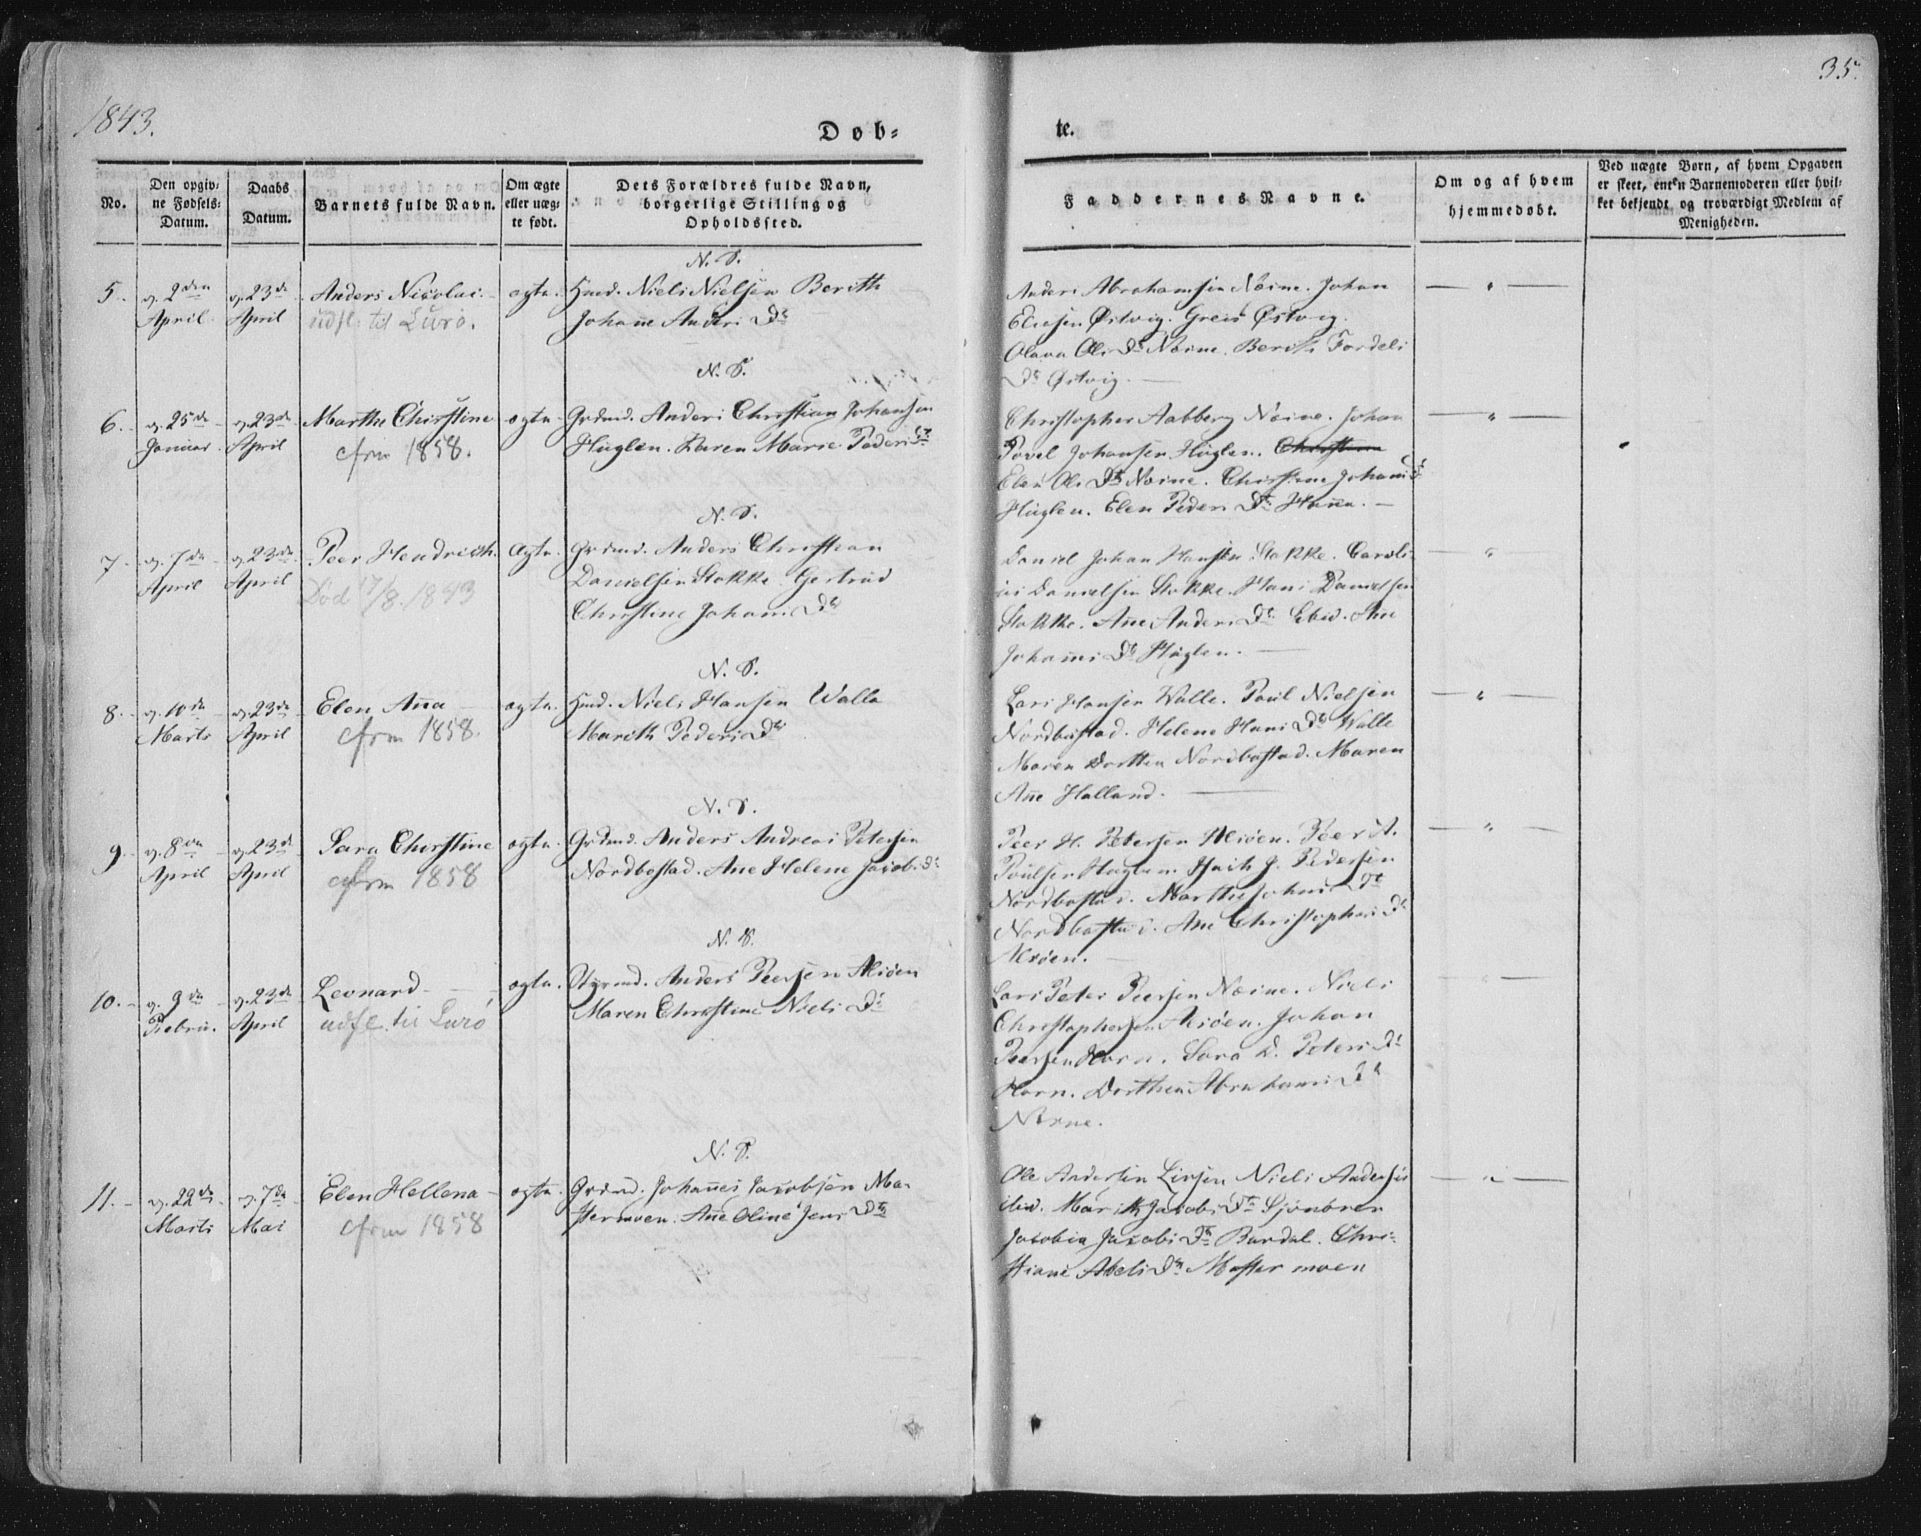 1843.
35.
Døb-
te.
No.
Den opgiv-
ne Fødsels-
Datum.
Daabs
Datum.
Barnets fulde Navn.
Om ægte
eller uæg-
te født.
Dets Forældres fulde Navn,
borgerlige Stilling og
Opholdssted.
Faddernes Navne.
Om og af hvem
hjemmedøbt.
Ved uægte Børn, af hvem Opgaven
er skeet, enten Barnemoderen eller hvil-
ket bekjendt og troværdigt Medlem af
Menigheden.
N. S.
5. d. 2den April d. 23de April Anders Nicolai. ægte. Huusmd. Niels Nielsen Berith
udfl. til Lurö. Johanne Anders Dr
Anders Abrahamsen Næsne. Johan
Eliesen Østvig. Greis Østvig.
Olava Ols Dr Næsne. Berith Tordels
Dr Østvig.
N. S.
6. d. 25de Januar d. 23de April Marthe Christine ægte Grdmd. Anders Christian Johansen
cfrm 1858. Huglen. Karen Marie Peders Dr
Christopher Aabberg Næsne. Johan
Povel Johansen Huglen.
Elen Ols Dr Næsne. Christine Johans Dr
Huglen. Elen Peders Dr
N. S.
7. d. 7de April d. 23de April Peer Hendrich. ægte. Grdmd. Anders Christian
Død 17/8. 1843 Danielsen Stokke Gertrud
Christine Johans Dr
Daniel Johan Hansen Stokke. Caroli-
us Danielsen Stokke. Hans Danielsen
Stokke. Ane Anders Dr ibid. Ane
Johans Dr Huglen.
N. S.
8. d. 10de Marts d. 23de April Elen Anna ægte. Huusmd. Niels Hansen Valla
cfrm 1858. Mareth Peders Dr
Lars Hansen Walle. Poul Nielsen
Nordbostad. Helene Hans Dr Walle
Maren Dorthea Nordbostad. Maren
Ane Halland.
N. S.
9. d. 8de April d. 23de April Sara Christine ægte. Grdmd. Anders Andreas Petersen
cfrm 1858 Nordbostad. Ane Helene Jacobs Dr
Peer H. Petersen Alsöen. Peer A.
Poulsen Huglen. Isach J. Pedersen
Nordbostad. Marthe Johns Dr
Nordbostad. Ane Christophers Dr
Alsöen.
N. S.
10. d. 9de Februar d. 23de April Leonard ægte. Styrmd. Anders Peersen Alsöen
udfl. til Lurö Maren Christine Niels Dr
Lars Peter Peersen Næsne. Niels
Christophersen Alsöen. Johan
Peersen Horn. Sara D. Peters Dr
Horn. Dorthea Abrahams Dr
Næsne.
N. S.
11. d. 22de Marts d. 7de Mai Elen Hellena ægte. Grdmd. Johannes Jacobsen Ma-
cfrm 1858 stermoen. Ane Oline Jens Dr
Ole Andersen Niels Andersen
ibid. Marith Jacobs Dr
Jacobia Jacobs Dr Bardal. Chri-
stiane Abels Dr Mastermoen